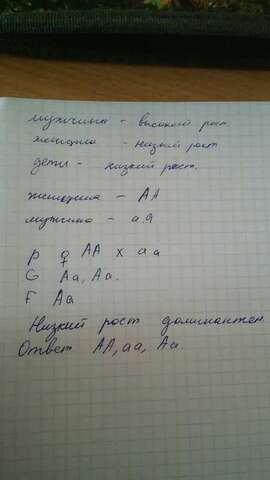 мужчины - высокий рост
женщина - низкий рост
дети - низкий рост.
женщина - АА
мужчина - аа
р ♀ АА х аа
G Аа, Аа.
F Аа
Низкий рост доминантен.
Ответ АА, аа, Аа.